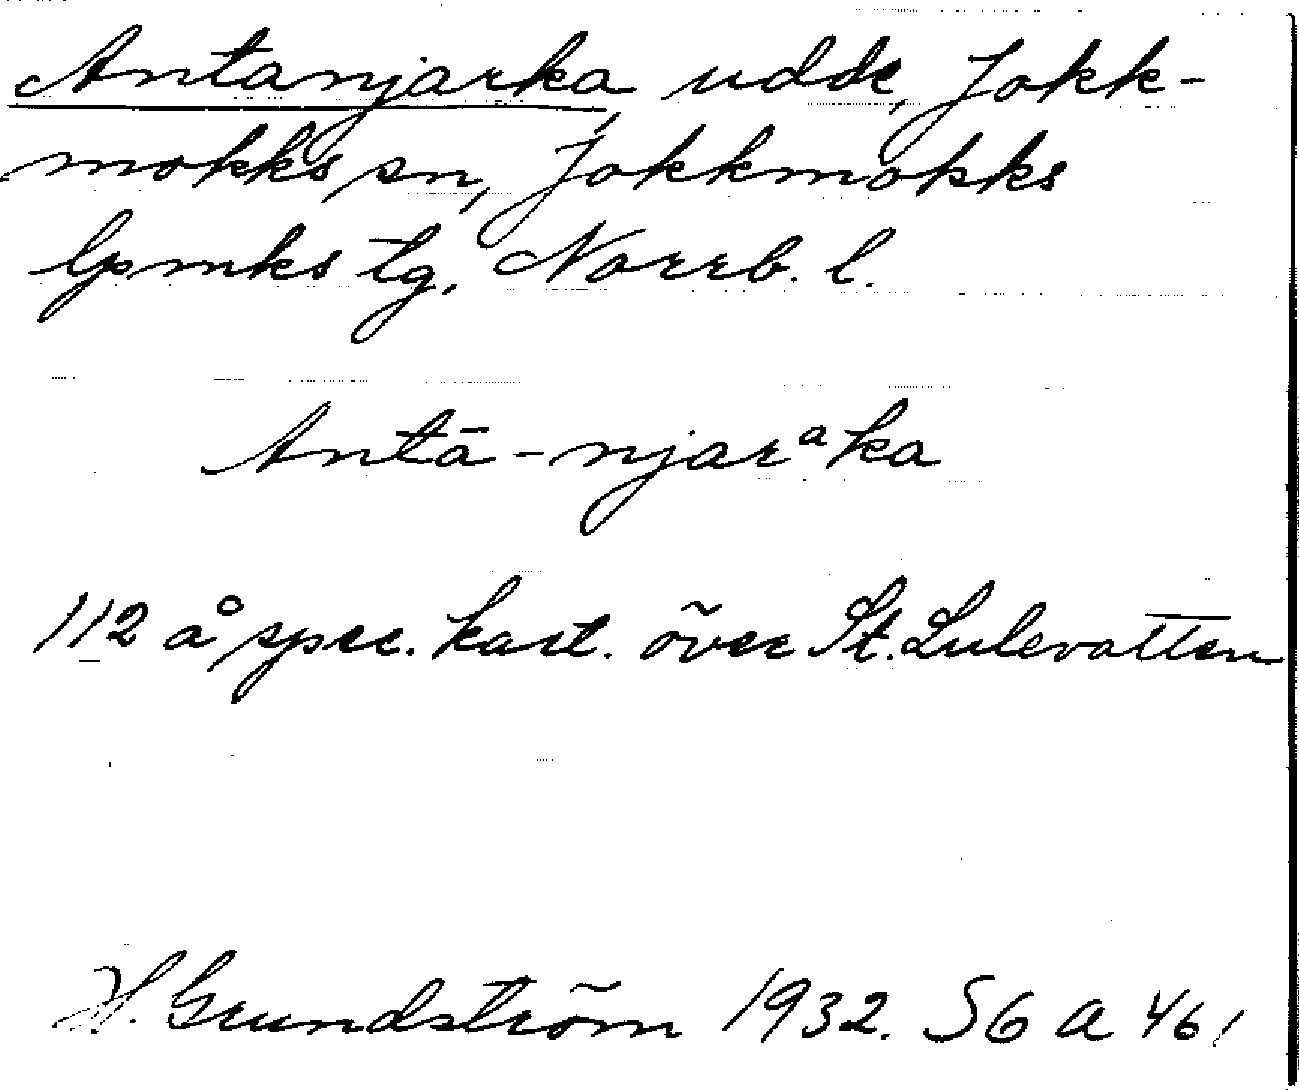 Antanjarka, udde, Jokk-
mokks sn, Jokkmokks
lpmks tg, Norrb. l.
Antā-njarᵃka
112 å spec. kart. över St. Lulevatten
H. Grundström 1932. S6 a 46